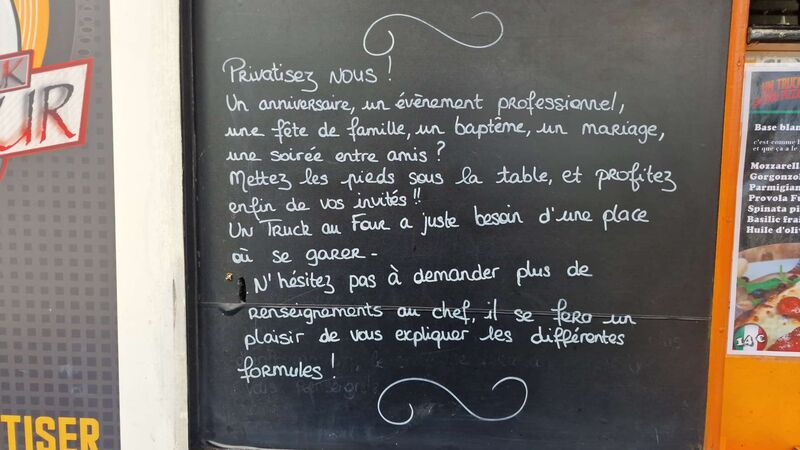 Privatisez NOUS !
Un anniversaire, un évènement professionnel,
une fête de famille, un baptême, un mariage,
une soirée entre amis ?
Mettez les pieds sous la table, et profitez
enfin de vos invités !!
Un Truck au Four a juste besoin d'une place
où se garer -
N'hésitez pas à demander plus de
renseignements au chef, il se fera un
plaisir de vous expliquer les différentes
formules !
UR
TISER
UN TRUC
Base blan
c'est-comme l
et que ça a le
Mozzarell
Gorgonzol
Parmigian
Provola Fu
Spinata pi
Basilic frai
Huile d'oli
14 €